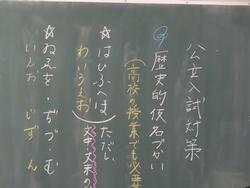 公立入試対策
◎歴史的仮名づかい
(高校の授業でも必要
☆はひふへほ ただし、
わいうえお 文中、文末の
☆ゐゑを・ぢづ・む
いえお じずん